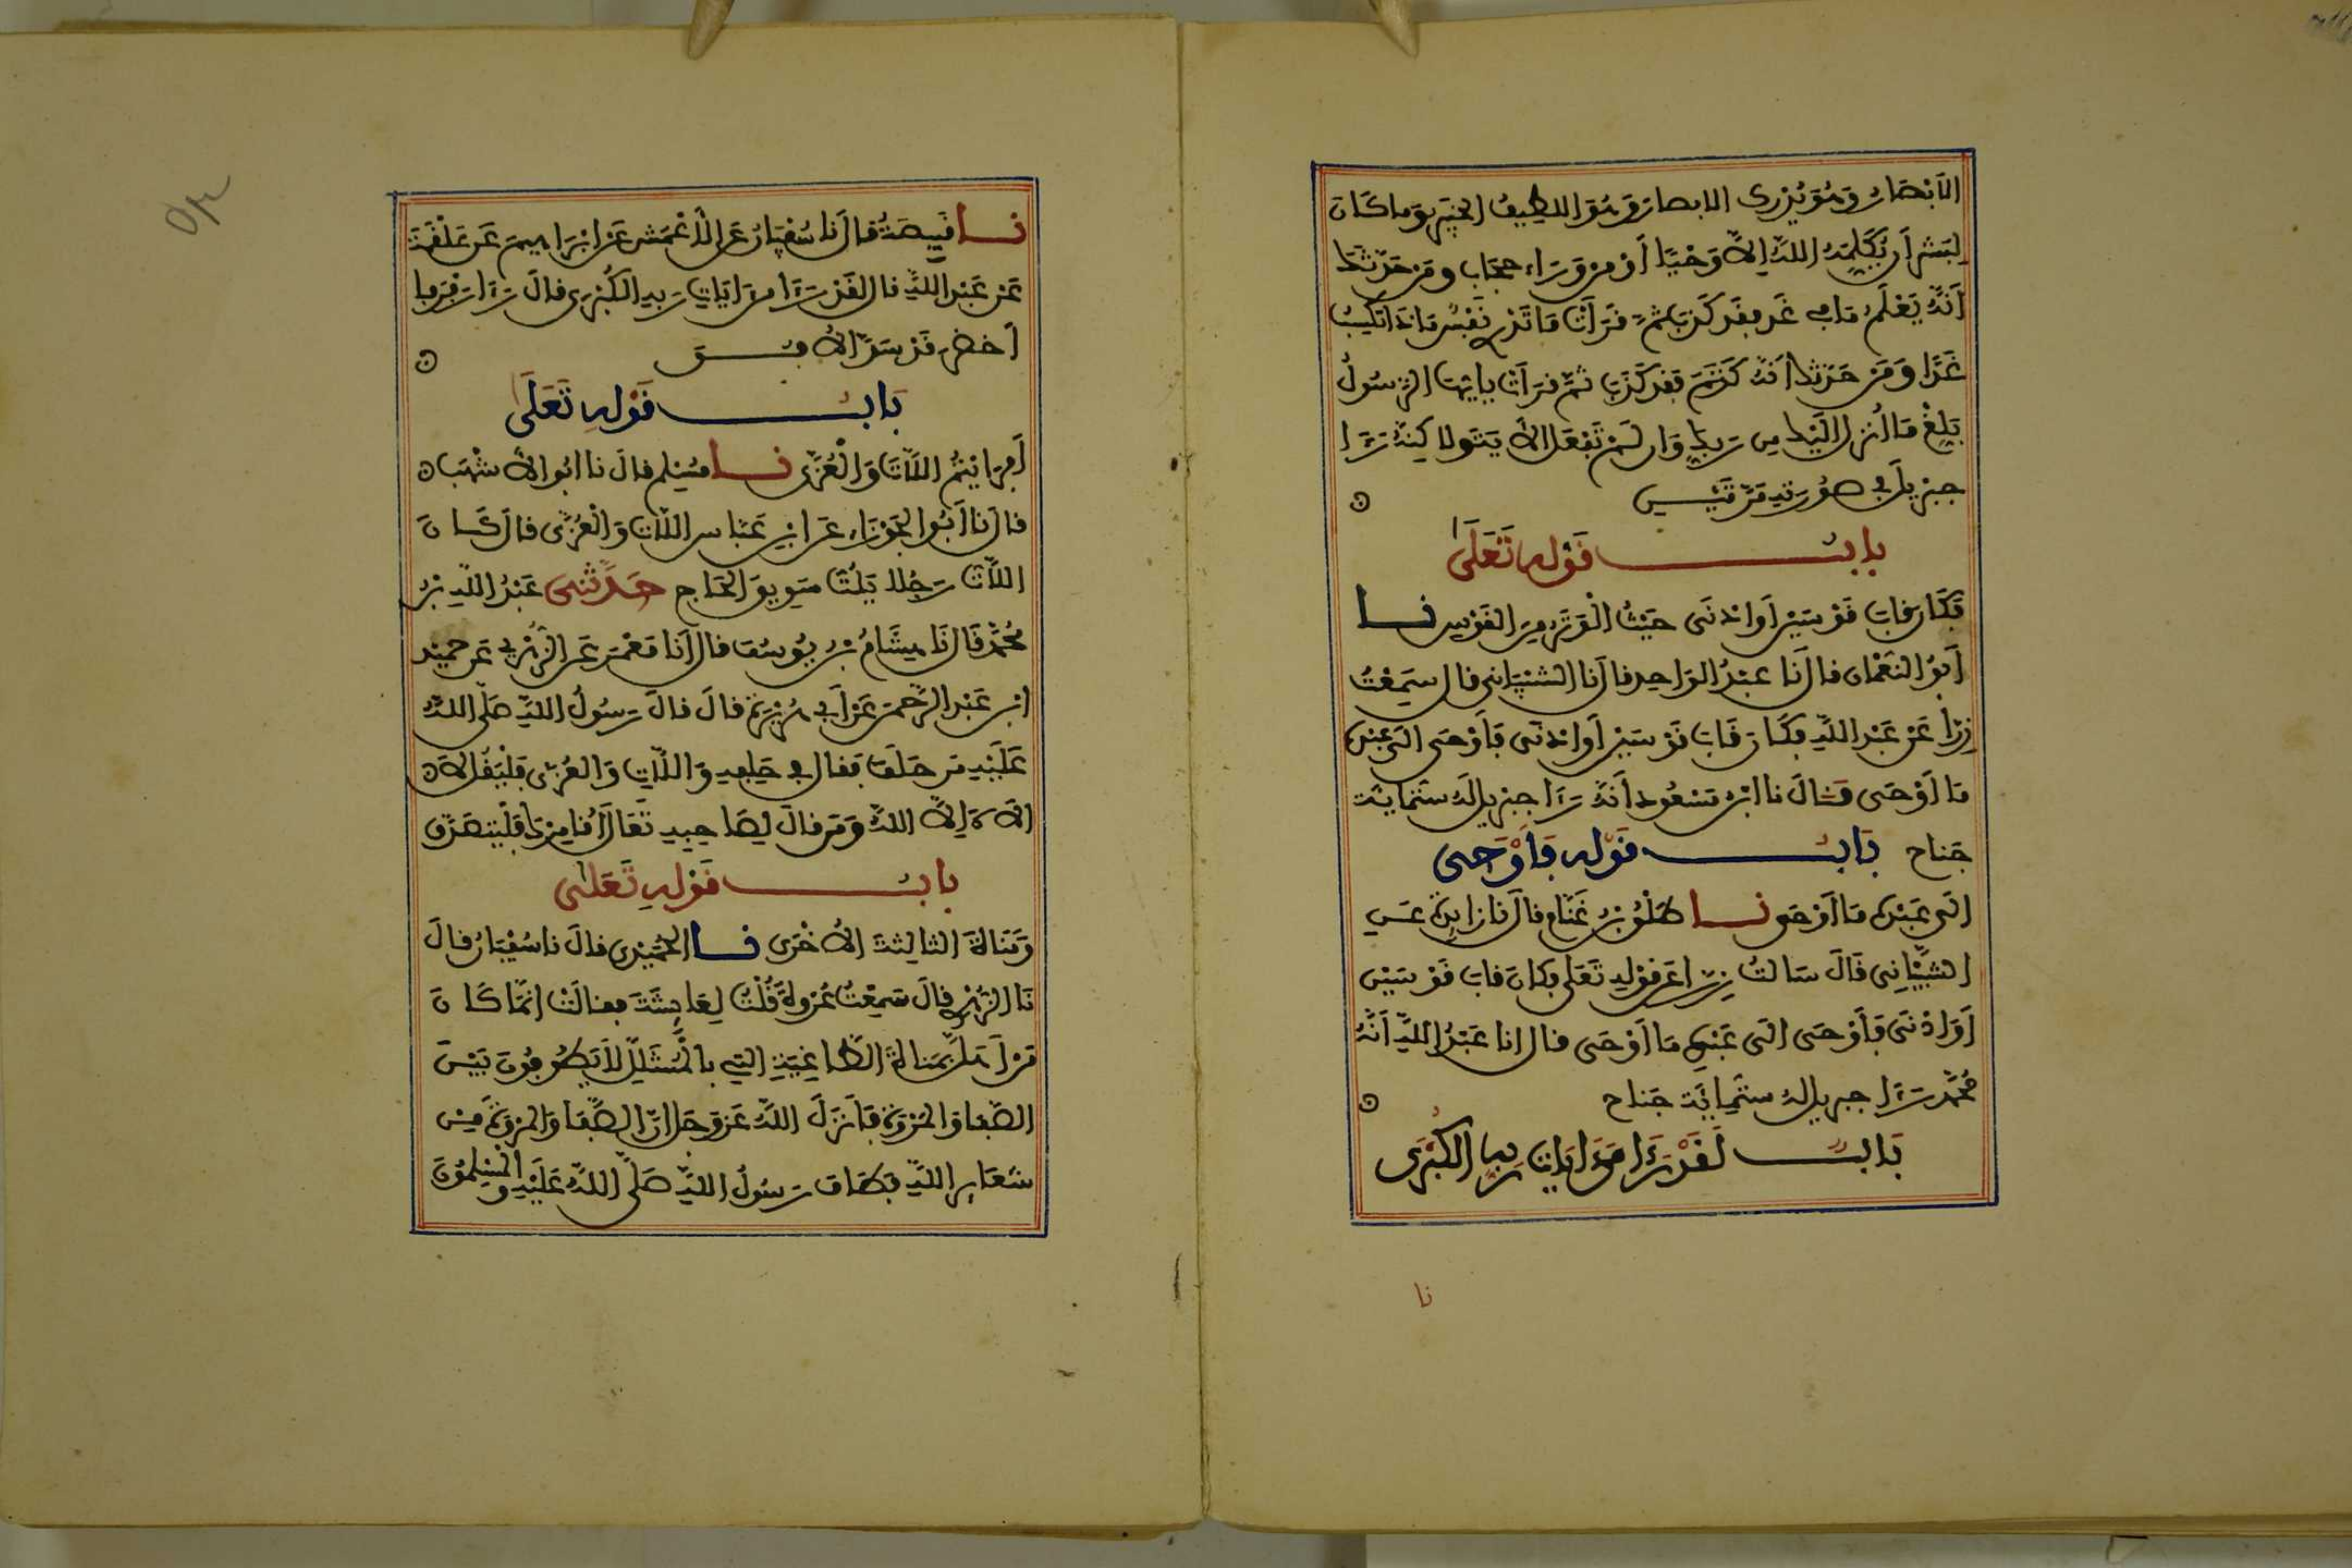 الابصار وهو يدرك الابصار وهو اللطيف الخبير وما كان
لبشر ان يكلمه الله الا وحيا او من وراء حجاب ومن حدثك
انه يعلم ما في غد فقد كذب ثم قرات ما تدر نفس ماذا تكسب
غدا ومن حدثك انه كتم فقد كذب ثم قرات يايها الرسول
بلغ ما انزل اليك من ربك وان لم تفعل الاية ولاكنه رءا
جبريل في صورته مرتين
باب قوله تعلى
فكان قاب قوسين او ادنى حيث الوتر من القوس نا
ابو النعمان قال نا عبد الواحد قال نا الشيباني قال سمعت
زرا عن عبد الله فكان قاب قوسين او ادنى فاوحى الى عبده
ما اوحى قال نا ابن مسعود انه رءا جبريل له ستماية
جناح باب قوله فاوحى
الى عبده ما اوحى نا طلق بن غنام قال نا زايدة عن
الشيباني قال سالت زرا عن قوله تعلى فكان قاب قوسين
او ادنى فاوحى الى عبده ما اوحى قال انا عبد الله انه
محمد رءا جبريل له ستماية جناح
باب لقد رءا من ايات ربه الكبرى
نا
نا قبيصة قال نا سفيان عن الاعمش عن ابراهيم عن علقمة
عن عبد الله قال لقد رءا من ايات ربه الكبرى قال رءا رفرفا
اخضر قد سد الافق
باب قوله تعلى
افرايتم اللات والعزى نا مسلم قال نا ابو الاشهب
قال نا ابو الجوزاء عن ابن عباس اللات والعزى قال كان
اللات رجلا يلت سويق الحاج حدثني عبد الله بن
محمد قال نا هشام بن يوسف قال انا معمر عن الزهري عن حميد
ابن عبد الرحمن عن ابي هريرة قال قال رسول الله صلى الله
عليه من حلف فقال في حلفه واللات والعزى فليقل لا
الاه الا الله ومن قال لصاحبه تعال اقامرك فليتصدق
باب قوله تعلى
ومناة الثالثة الاخرى نا الحميدي قال نا سفيان قال
نا الزهري قال سمعت عروة قلت لعايشة فقالت انما كان
من اهل بمناة الطاغية التي بالمشلل لا يطوفون بين
الصفا والمروة فانزل الله عز وجل ان الصفا والمروة من
شعاير الله فطاف رسول الله صلى الله عليه والمسلمون